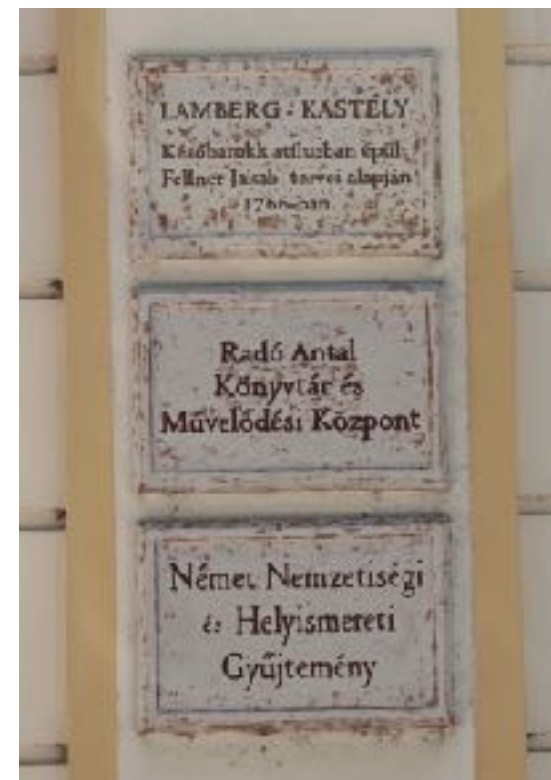 LAMBERG - KASTÉLY
Későbarokk stílusban épült
Fellner Jakab tervei alapján
Radó Antal
Könyvtár és
Művelődési Központ
Német Nemzetiségi
és Helyismereti
Gyűjtemény